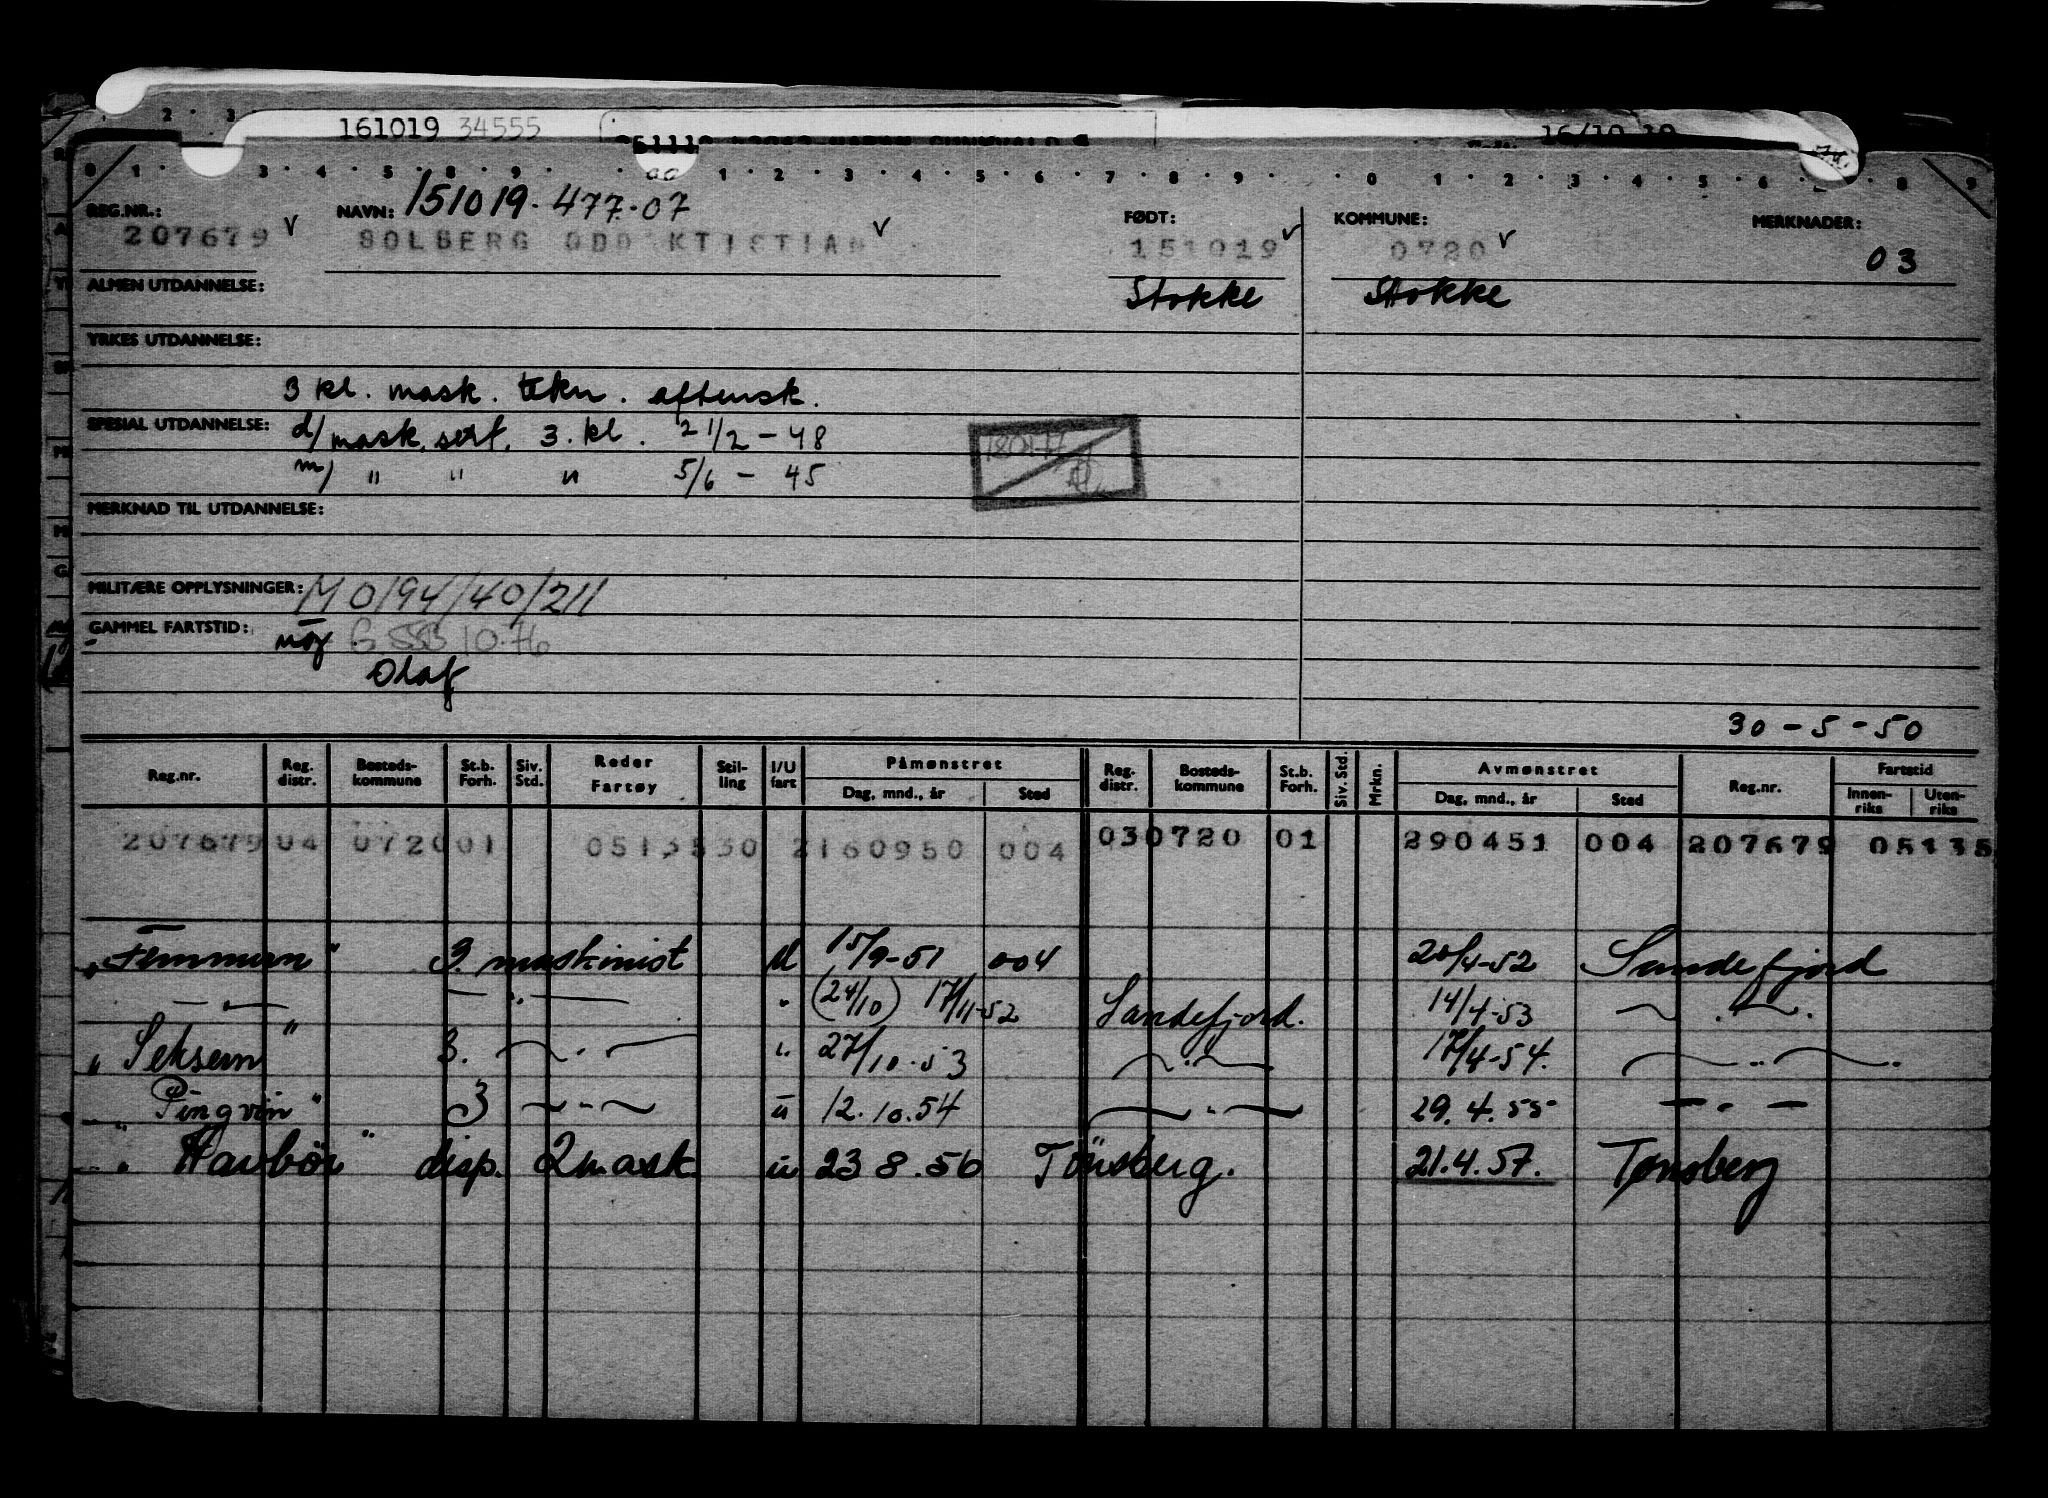 161019 34555
16/10 19
REG.NR.: 207679 NAVN: 151019-477-07 FØDT: KOMMUNE: MERKNADER:
SOLBERG ODD KTISTIAN 151019 0720 03
ALMEN UTDANNELSE: Stokke Stokke
YRKES UTDANNELSE:
3 kl. mask. tekn. aftensk.
SPESIAL UTDANNELSE: d/ mask. sert. 3. kl. 2 1/2 - 48
m/ " " " 5/6 - 45
MERKNAD TIL UTDANNELSE:
MILITÆRE OPPLYSNINGER: M 0/94/40/211
GAMMEL FARTSTID:
Olaf
30-5-50
Reg.nr. Reg. distr. Bosteds-kommune St.b. Forh. Siv. Std. Reder Fartøy Stil-ling I/U fart Påmønstret Dag, mnd., år Sted Reg. distr. Bosteds-kommune St.b. Forh. Siv. Std. Mrkn. Avmønstret Dag, mnd., år Sted Reg.nr. Fartstid Innen-riks Uten-riks
207679 04 0720 01 0513530 2160950 004 03 0720 01 290451 004 207679 05135
"Femmern" 3. maskinist u 15/9-51 004 20/4-52 Sandefjord
— " — — " — " (24/10) 17/11-52 Sandefjord. 14/4-53 — " —.
"Seksern" 3. — " — " 27/10-53 — " — 17/4-54. — " —
"Pingvin" 3 — " — u 12.10.54 — " — 29.4.55 — " —
"Havbör" disp. 2 mask. u 23 8.56 Tönsberg. 21.4.57. Tønsberg